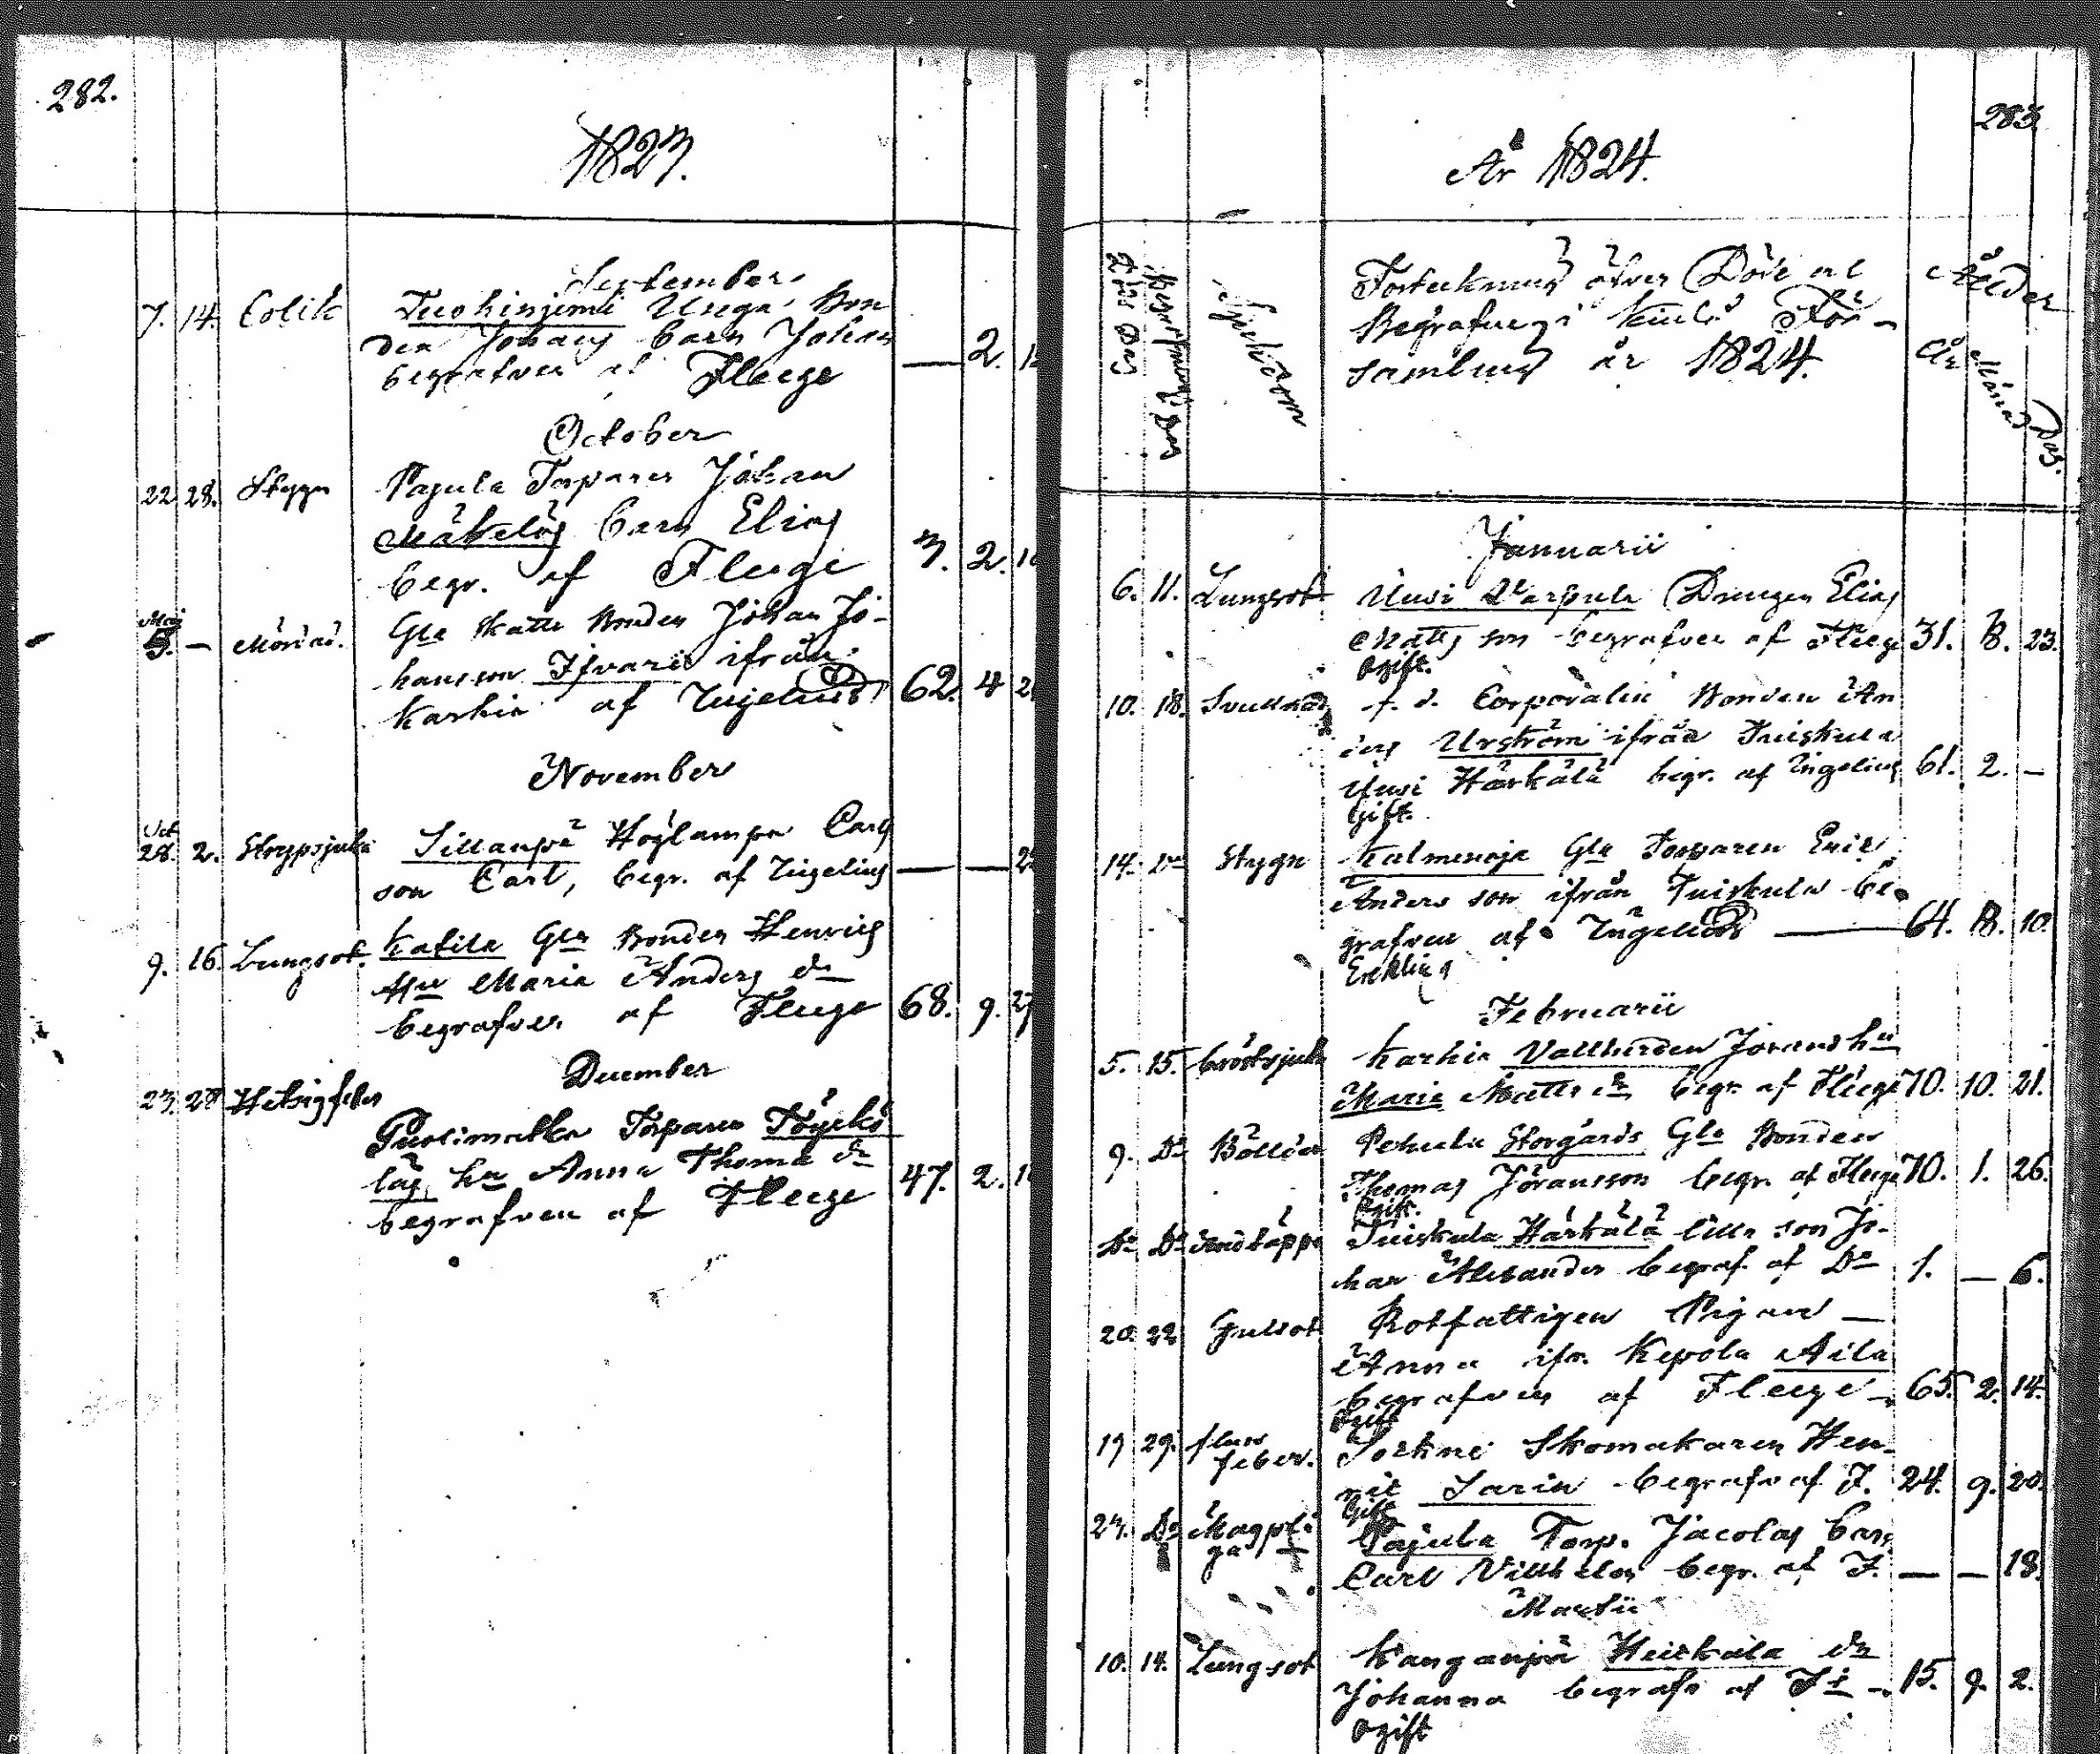 282.
1823.
September
7. 14. Colik Tuohinjemi Unga Bon
den Johans barn Johan
begrafven af Fleege — 2.
October
22 28. Stygn Pajula Torparen Johan
Mäkeläs barn Elias
begr. af Fleege 3. 2.
Maj
5. — Mördad. Gla Skatte Bonden Johan Jo-
hansson Ifvari ifrån
Karhia af Ingelius 62. 4
November
Oct
28. 2. Strypsjuka Sillanpä Höglampa Carls
son Carl, begr. af Ingelius — —
9. 16. Lungsot. Katila Gla Bonden Henrics
Hu Maria Anders dr
begrafven af Fleege 68. 9. 27
December
23. 28 Hetsigfeber
Puolimatka Torparen Töyckö
läs hu Anna Thoma dr
begrafven af Fleege 47. 2.
283.
År 1824.
Döds Dag
Begrafnings Dag
Sjukdom
Förteckning öfver Döde och
Begrafne i Kiulo För-
samling år 1824.
Ålder
År Månad Dag.
Januarii
6. 11. Lungsot Uusi Warpula Drengen Elias
Matts son begrafven af Fleege 31. 8. 23.
Ogift.
10. 18. f. d. Corporalen Bonden An
ders Urström ifrån Tuiskula
Uusi Härkälä begr. af Ingelius 61. 2. —
Gift.
14. Do Stygn Kalmenoja Gla Torparen Eric
Anders son ifrån Tuiskula be
grafven af Ingelius — 64. 8. 10.
Enkling
Februarii
5. 15. bröstsjuka Karhia Vallherden Jörans hu
Maria Matts dr begr. af Fleege 70. 10. 21.
9. Do Bölder Pehula Storgårds Gla Bonden
Thomas Jöransson begr. af Fleege 70. 1. 26.
Gift.
Do Do Tuiskula Härkälä lilla son Jo-
han Alexander begraf. af Do 1. — 6.
20. 22 Gulsot Rotfattigen Pigan —
Anna ifr. Kepola Aila
begrafven af Fleege — 65. 2. 14.
Ogift
19 29. feber. Sorknä Skomakaren Hen-
ric Sarin begrafv af F. 24. 9. 20.
Gift
27. Do Magpla
ga Pajula Torp. Jacolas barn
Carl Vilhelm begr. af F. — — 18.
Martii
10. 14. Lungsot Kanganpä Heickala dr
Johanna begrafv af — 15. 9. 2.
Ogift